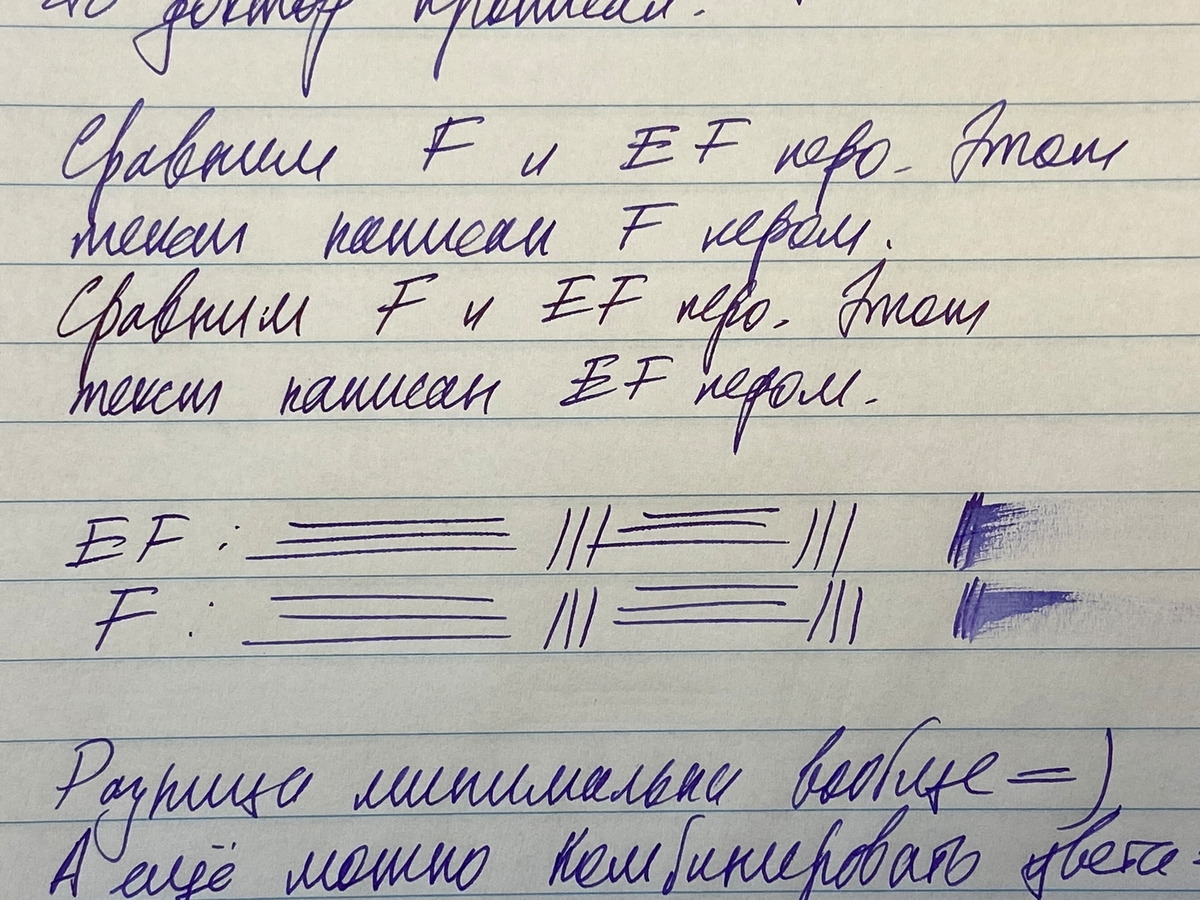 доктор прописал.
Сравним F и EF перо. Этот
текст написан F пером.
Сравним F и EF перо. Этот
текст написан EF пером.
EF :
F :
Разница минимальна вообще =)
А ещё можно комбинировать цвета